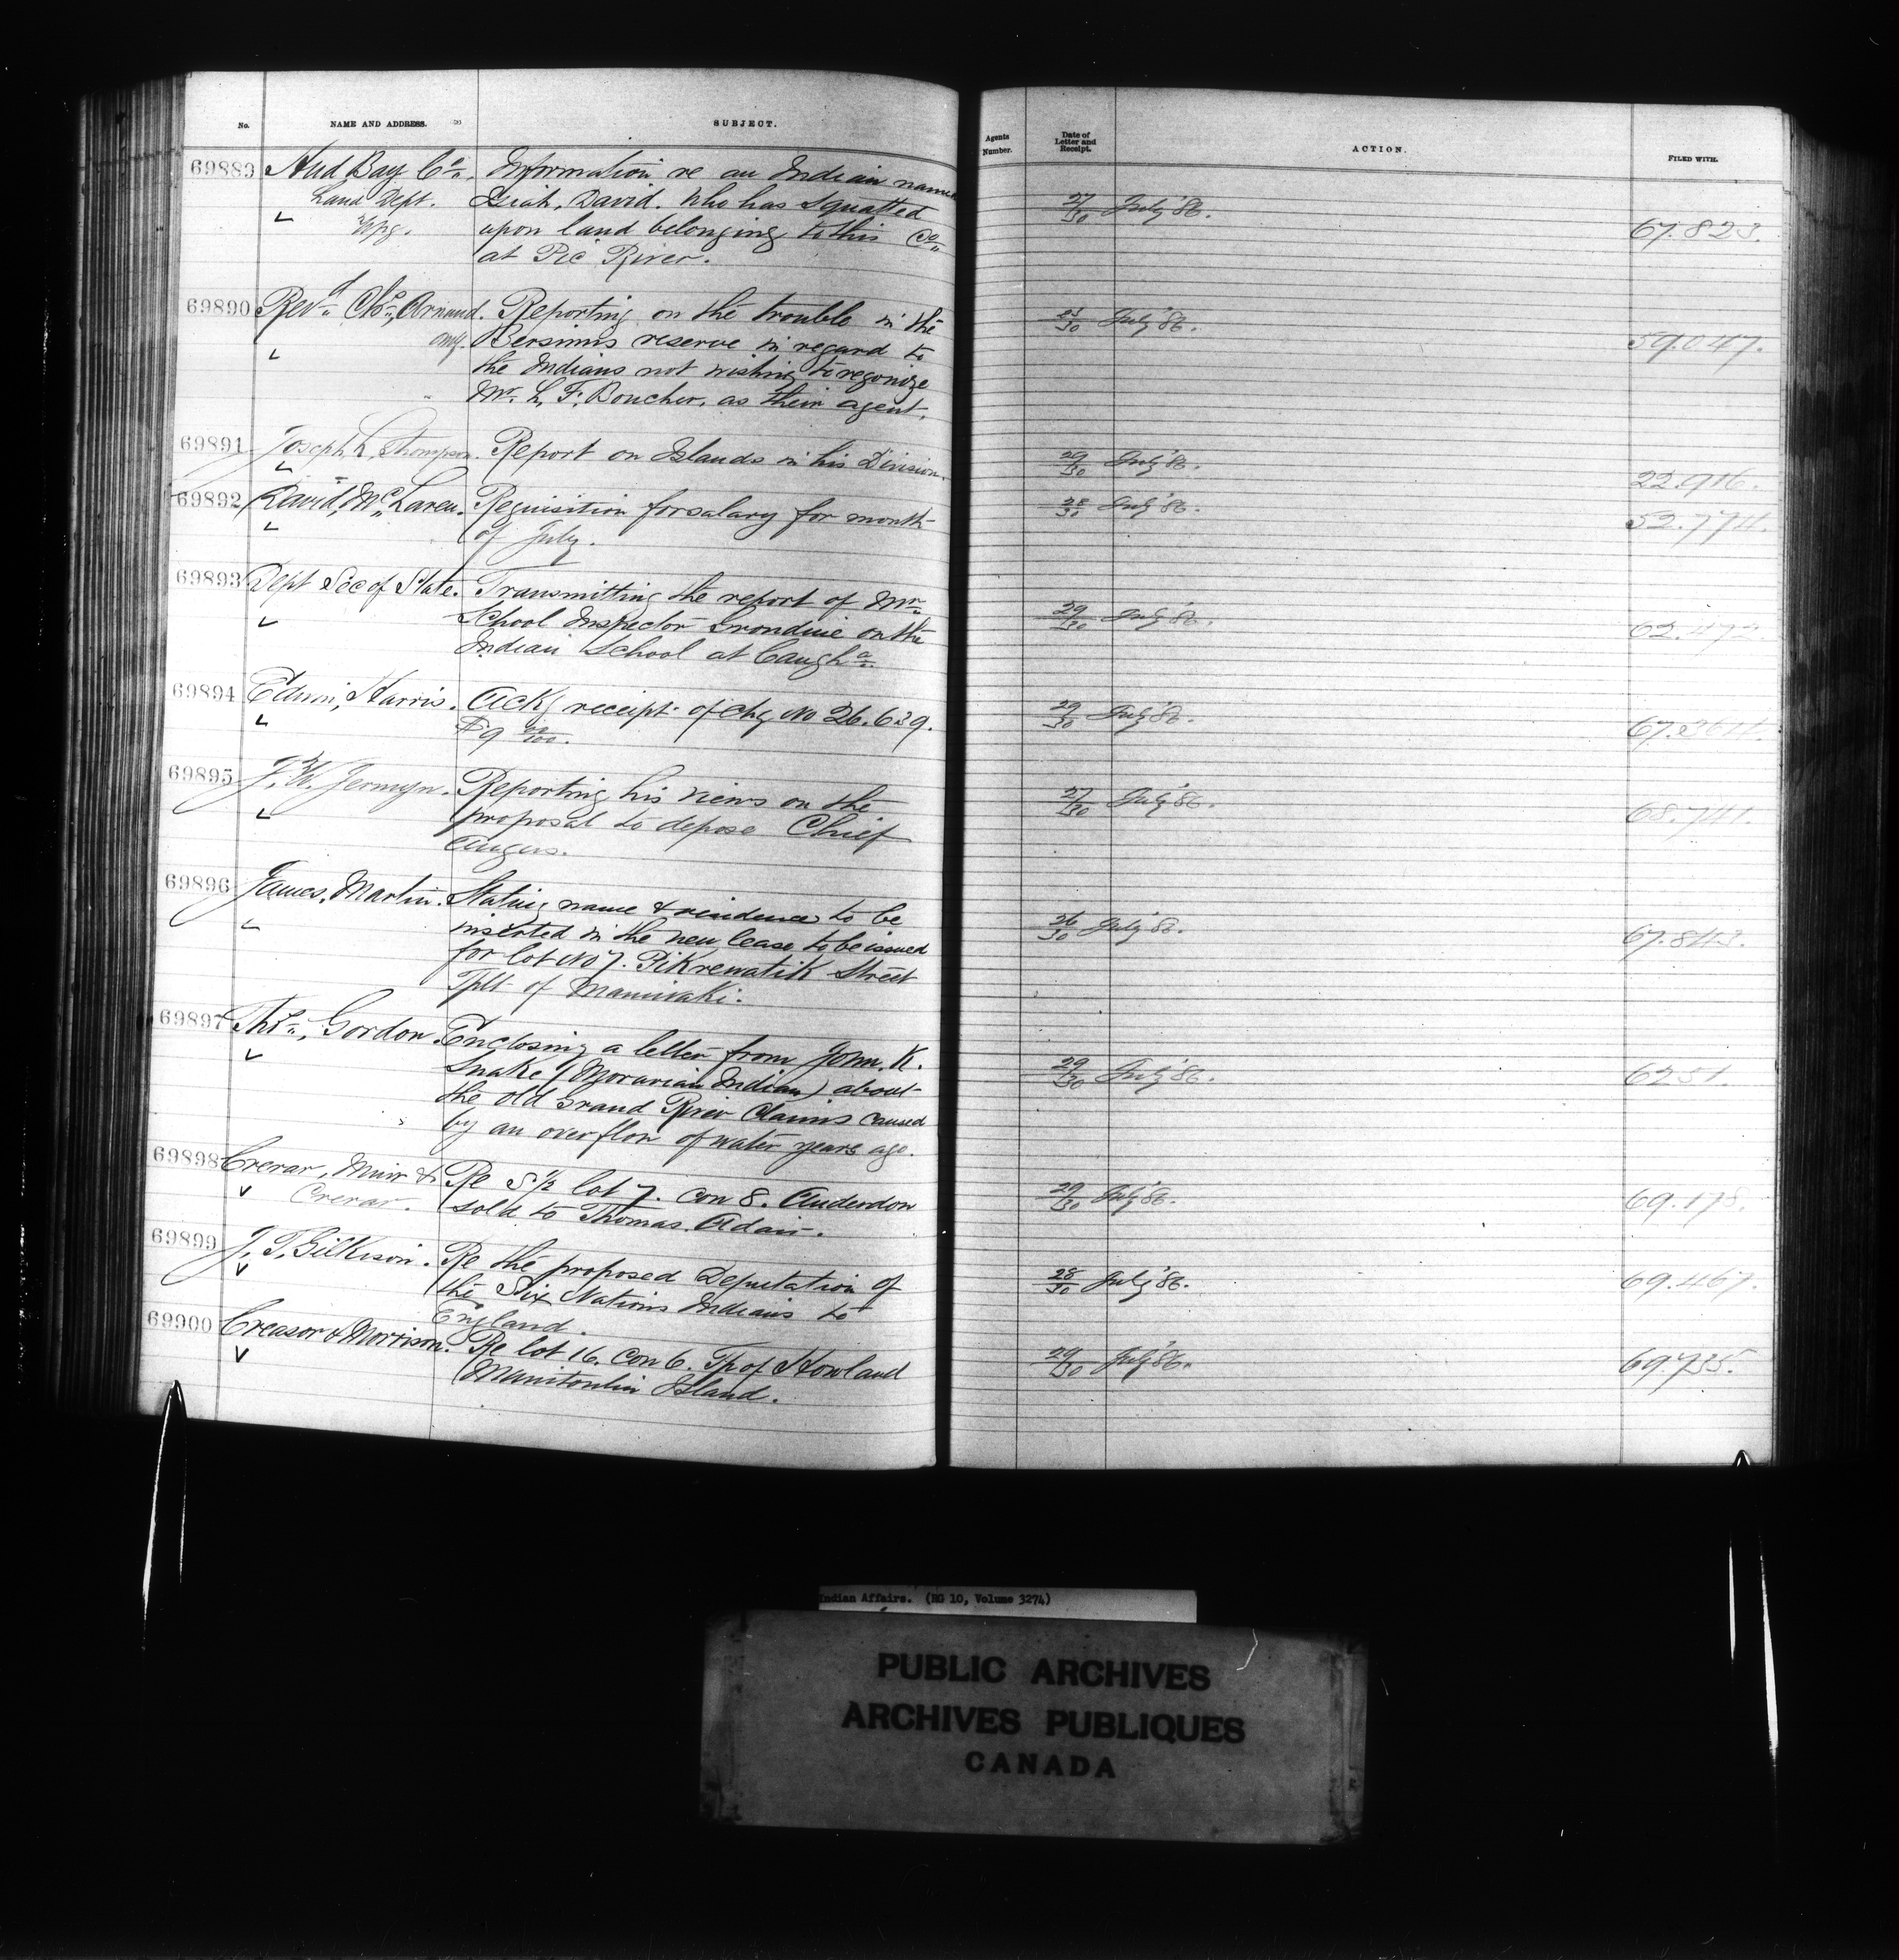 No. NAME AND ADDRESS. SUBJECT. Agents Number. Date of Letter and Receipt. ACTION. FILED WITH.
69889 Hud Bay Co. Information re an Indian named
Land Dept. David. who has squatted 27/30 July '86.
Wpg. upon land belonging to this Co 67.823.
at Pic River.
69890 Revd Chs. Arnaud. Reporting on the trouble in the July '86.
omi. Bersimis reserve in regard to 59.047.
the Indians not wishing to regonize
Mr. L. F. Boucher, as their agent.
69891 Joseph L. Thompson. Report on Islands in his Division. 29/30 July '86.
22.916.
69892 David, McLaren. Requisition for salary for month 28/30 July '86.
of July. 52.774.
69893 Dept Sec of State. Transmitting the report of Mr.
School Inspector Grondine on the 29/30 July '86.
Indian School at Caugha 62.472.
69894 Edwin, Harris. Ackg receipt of chq No 26.639. 29/30 July '86.
$9 00/100. 67.
69895 J. W. Jermyn. Reporting his views on the 27/30 July '86.
proposal to depose Chief 68.741.
Angus.
69896 James, Martin. Stating name & residence to be
inserted in the new lease to be issued 26/30 July '86.
for lot No 7. Pikrewatik Street 67.843.
Tplt of Maniwaki.
69897 Ths., Gordon. Enclosing a letter from John. K.
Snake (Moravian Indian) about 29/30 July '86.
the old Grand River Claims caused 6251.
by an overflow of water years ago.
69898 Crerar, Muir & Re S 1/2 lot 7. Con 8. Anderdon 29/30 July '86.
Crerar. sold to Thomas. Adair. 69.178.
69899 J. T. Gilkison. Re the proposed Deputation of
the Six Nations Indians to 28/30 July '86. 69.467.
England.
69900 Creasor & Morrison. Re lot 16. Con 6. Tp of Howland 29/30 July '86. 69.735.
Manitoulin Island.
Indian Affairs. (RG 10, Volume 3274)
PUBLIC ARCHIVES
ARCHIVES PUBLIQUES
CANADA